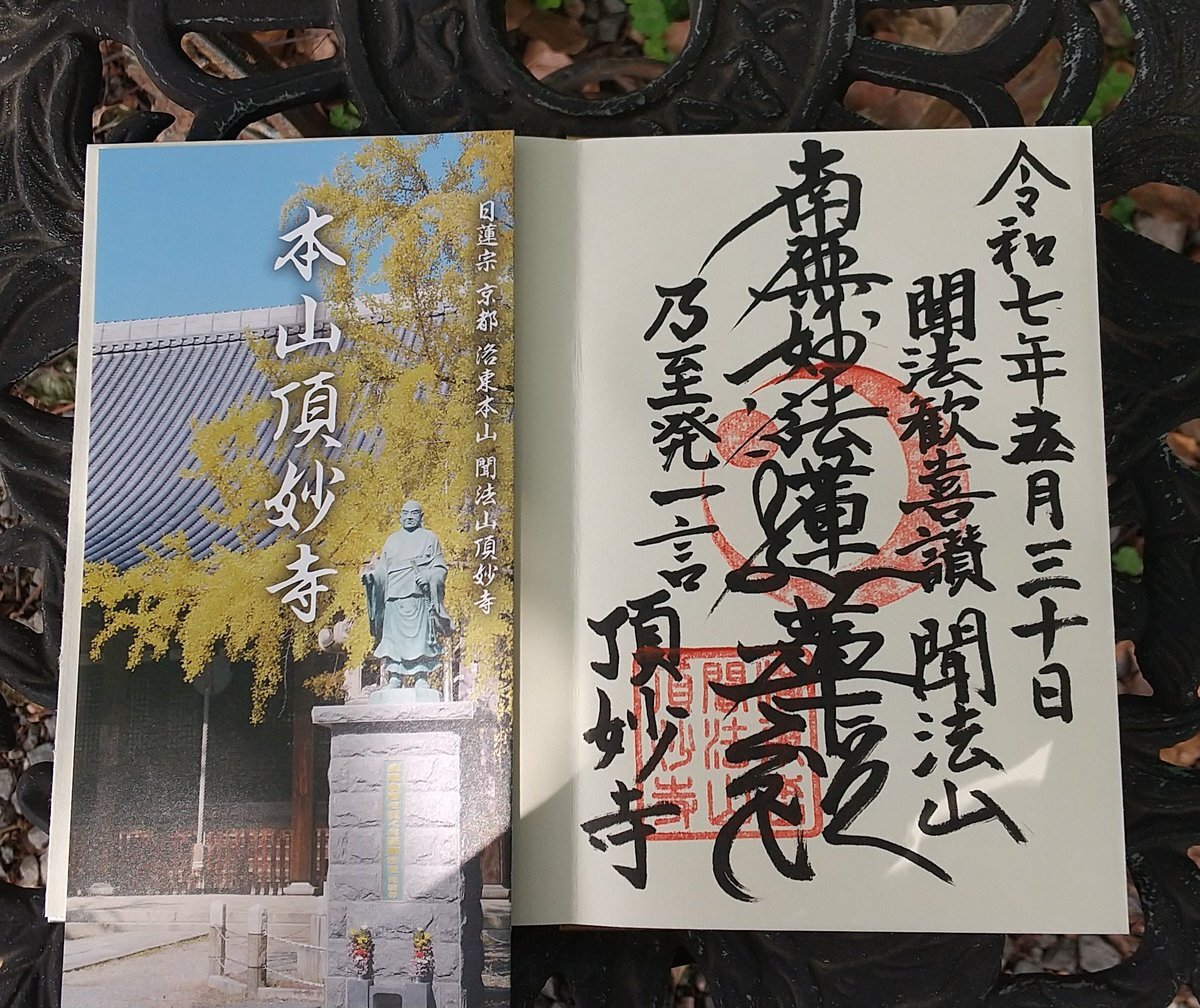 日蓮宗 京都 洛東本山 聞法山頂妙寺
本山頂妙寺
令和七年五月三十日
聞法歓喜讃 聞法山
南無妙法蓮華経
乃至発一言 頂妙寺
聞法山
頂妙寺